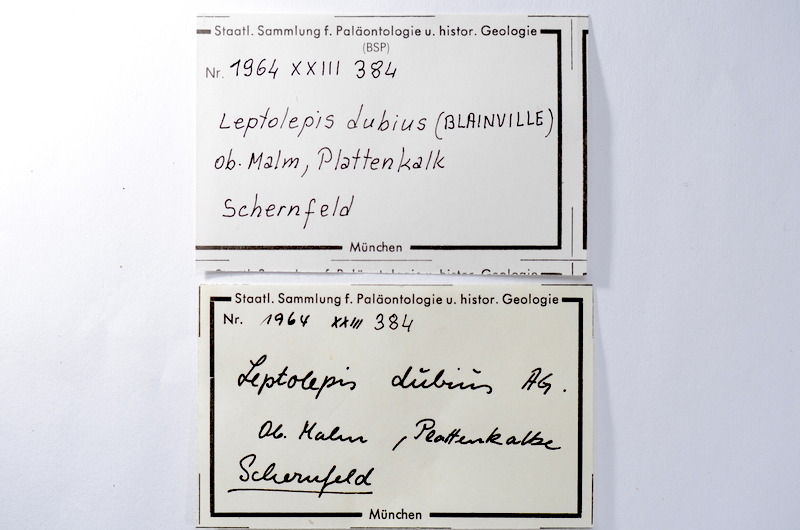 Staatl. Sammlung f. Paläontologie u. histor. Geologie
(BSP)
Nr. 1964 XXIII 384
Leptolepis dubius (BLAINVILLE)
ob. Malm, Plattenkalk
Schernfeld
München
Staatl. Sammlung f. Paläontologie u. histor. Geologie
Staatl. Sammlung f. Paläontologie u. histor. Geologie
Nr. 1964 XXIII 384
Leptolepis dubius AG.
Ob. Malm, Plattenkalke
Schernfeld
München